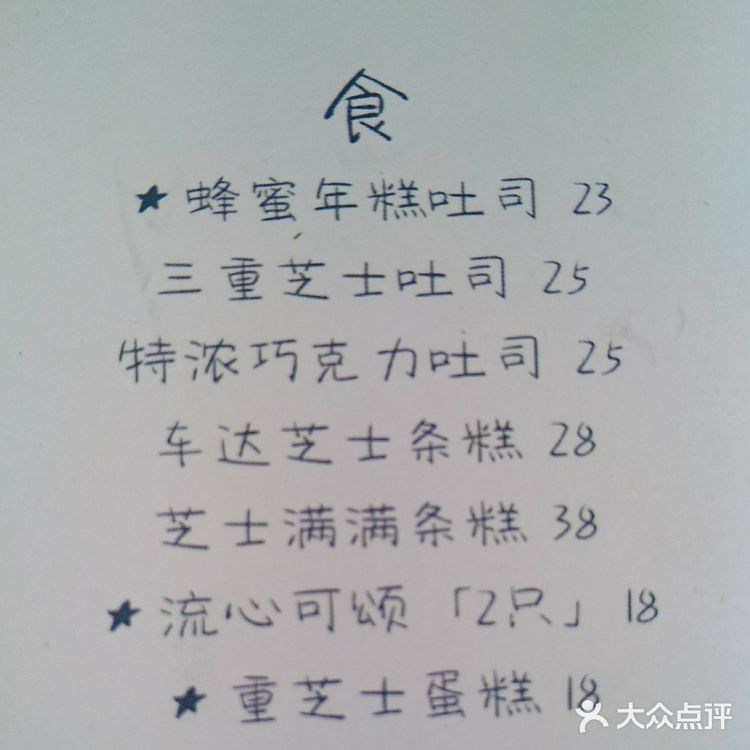 食
★ 蜂蜜年糕吐司 23
三重芝士吐司 25
特浓巧克力吐司 25
车达芝士条糕 28
芝士满满条糕 38
★ 流心可颂「2只」18
★ 重芝士蛋糕 18
大众点评